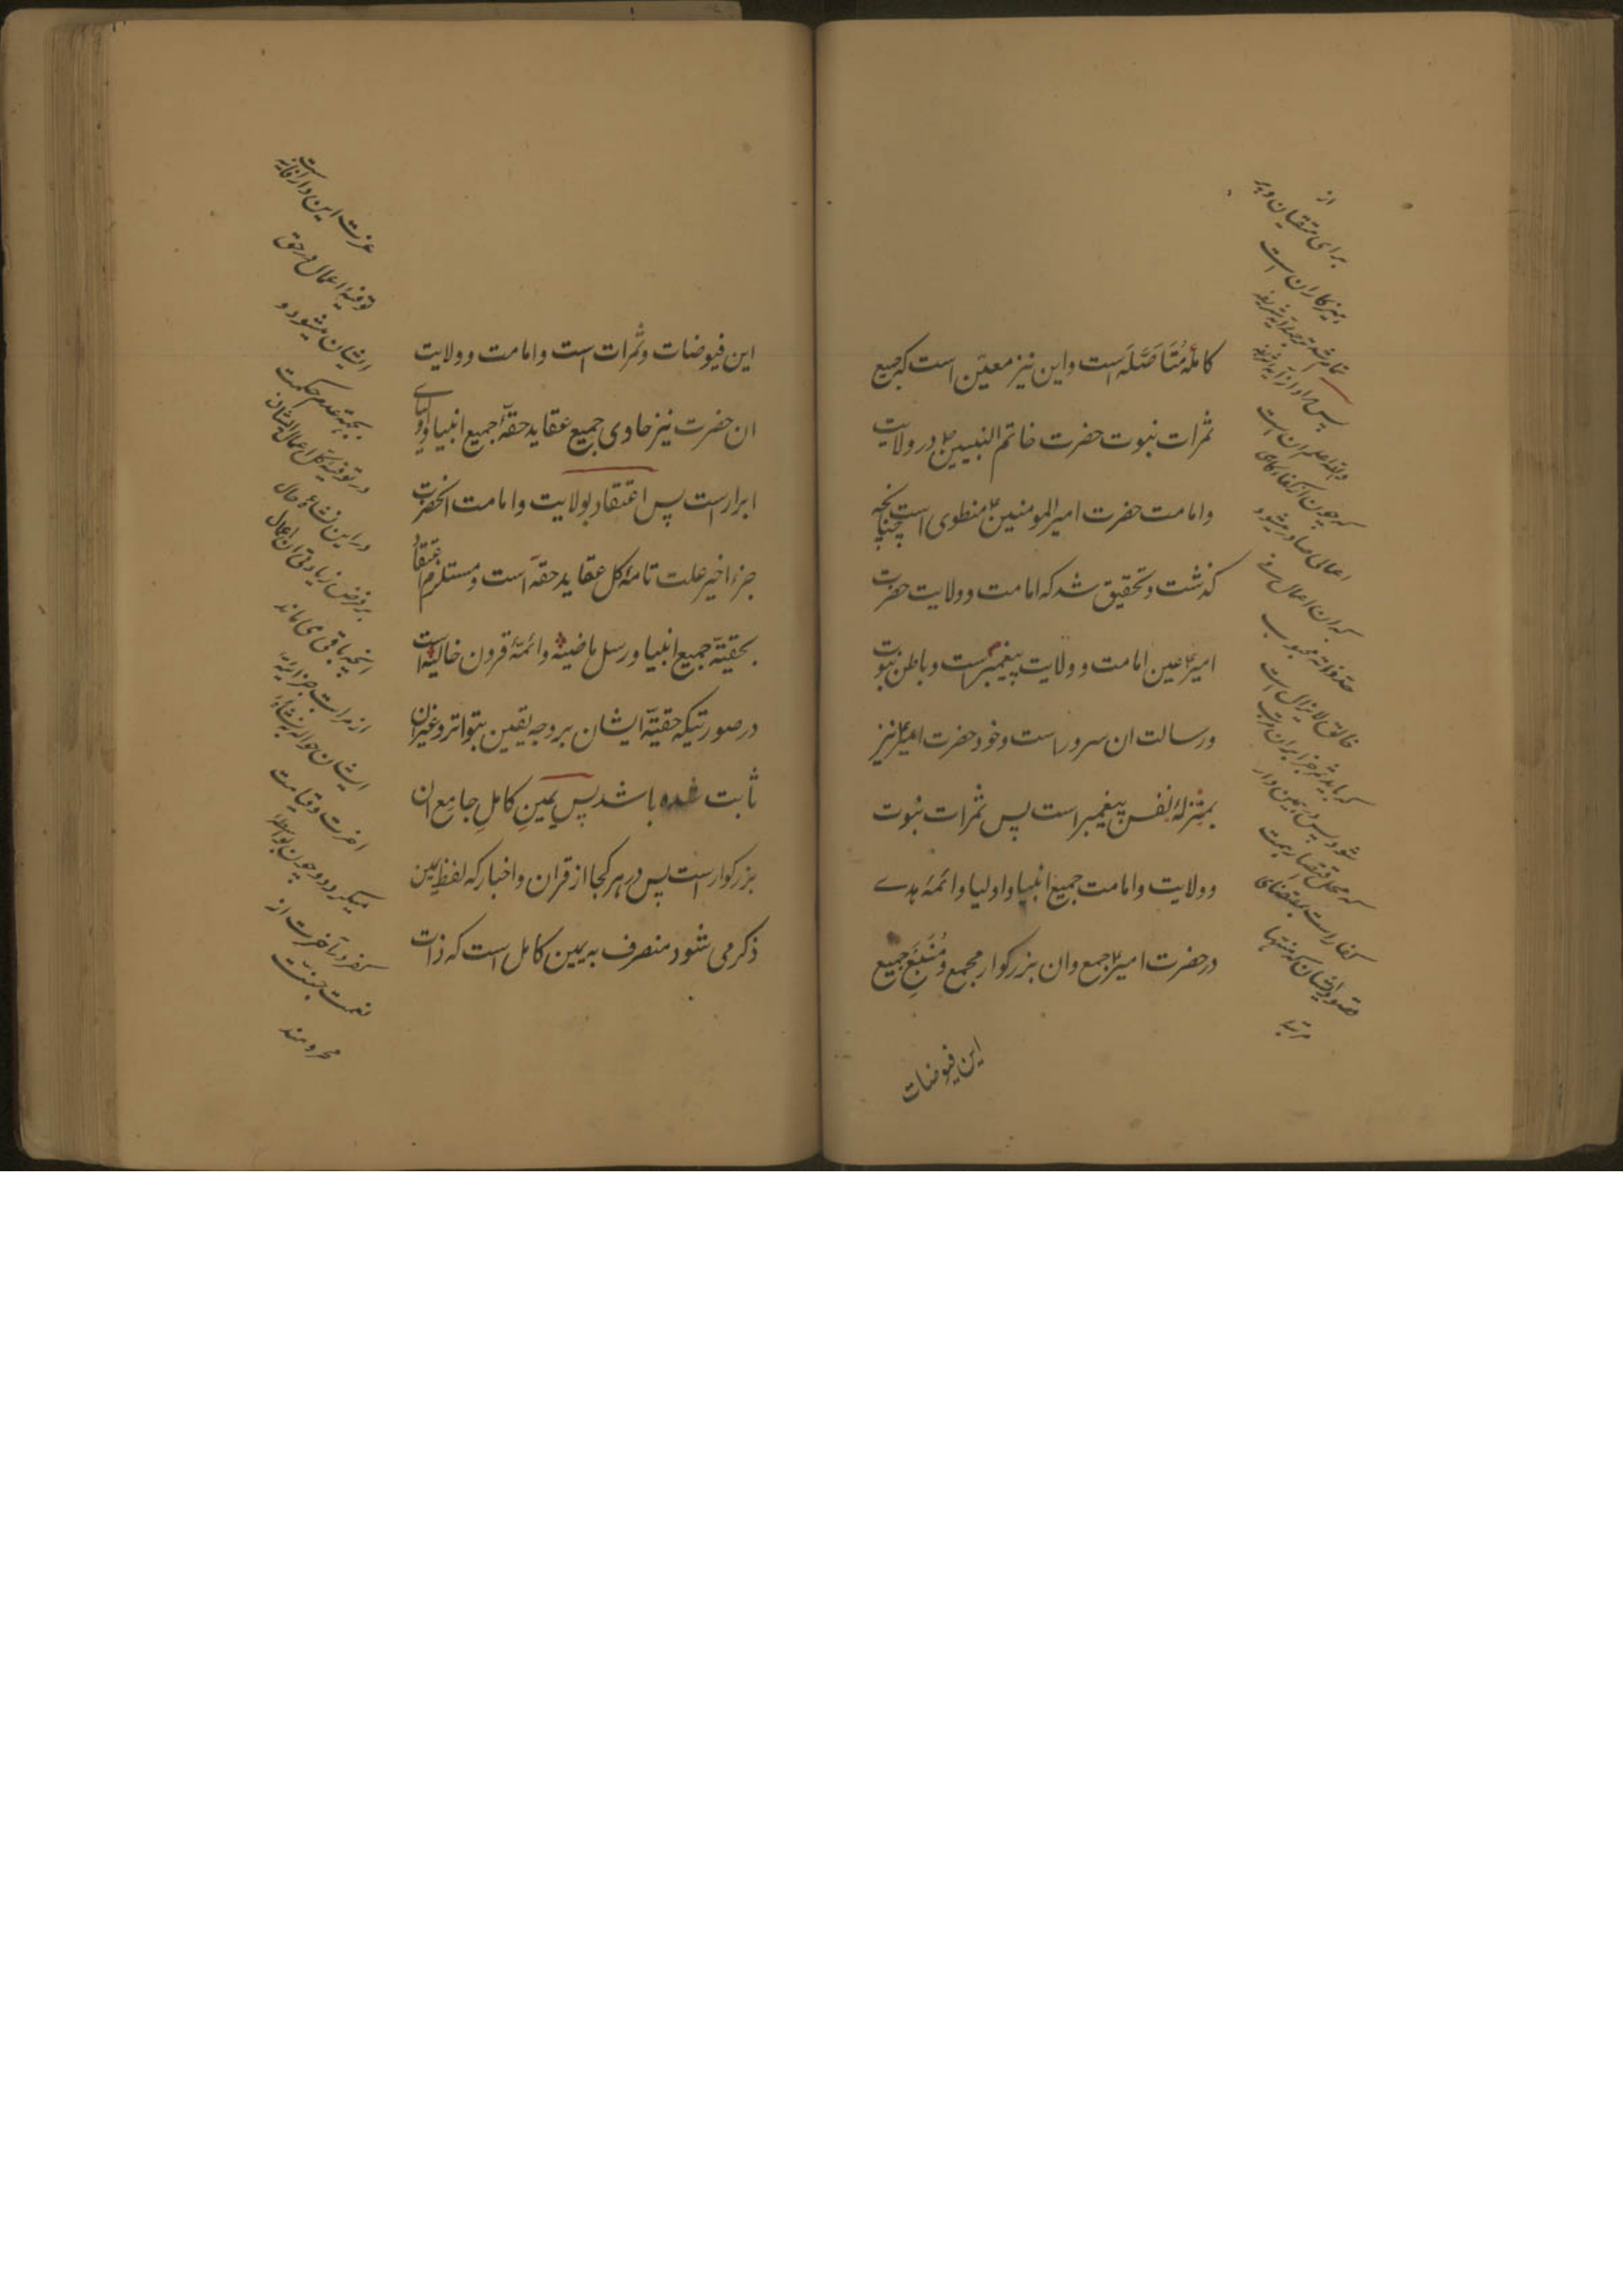 کاملهٔ مُتَاَصَّلَه است و این نیز معیّن است که جمیع
ثمرات نبوت حضرت خاتم النبیین ص در ولایت
و امامت حضرت امیرالمومنین ع منطوی است چنانچه
گذشت و تحقیق شد که امامت و ولایت حضرت
امیر ع عین امامت و ولایت پیغمبر است و باطن نبوت
و رسالت ان سرور است و خود حضرت امیر ع نیز
بمنزلهٔ نفس پیغمبر است پس ثمرات نبوت
و ولایت و امامت جمیع انبیا و اولیا و ائمهٔ هدے
در حضرت امیر ع جمع و ان بزرکوار مجمع و مَنبَعِ جمیع
این فیوضات
از
برای متقیان و پر
هیزکاران است
تمام شد ترجمهٔ آیه شریفه
پس مراد از آیه شریفه
والله اعلم ان است
که چون از کفار کاهی
اعمالی صادر میشود
که ان اعمال
محبوب
خالق لایزال است
که باید ثمر جزا بر ان مرتب
شود پس در همین دار
که محل
کفار است بمقتضای
مقصود ایشان که منتها
مرتبهٔ
این فیوضات و ثمرات است و امامت و ولایت
ان حضرت نیز حاوی جمیع عقاید حقهٔ جمیع انبیا و اولیای
ابرار است پس اعتقاد بولایت و امامت انحضرت
جزء اخیر علت تامهٔ کل عقاید حقه است و مستلزم اعتقاد
بحقیّة جمیع انبیا و رسل ماضیه و ائمهٔ قرون خالیه است
در صورتیکه حقیّة ایشان بر وجه یقین بتواتر و غیر ان
ثابت شده باشد پس یمینِ کاملِ جامع ان
بزرکوار است پس در هر کجا از قران و اخبار که لفظ یمین
ذکر می شود منصرف به یمین کامل است که ذات
عزت این دار فانیه است
توفیهٔ اعمال در حق
ایشان میشود و
بجهة عدم حکمت
در توفیهٔ کل اعمال ایشان
در این نشاءۀ حال
بر فرض زیادتی ان اعمال
انچه باقی می ماند
از ثمرات جزائیه
ایشان حواله بنشاءۀ
اخرت و قیامت
میکردد و چون بواسطهٔ
کفر در آخرت از
نعمت جنّت
محرومند